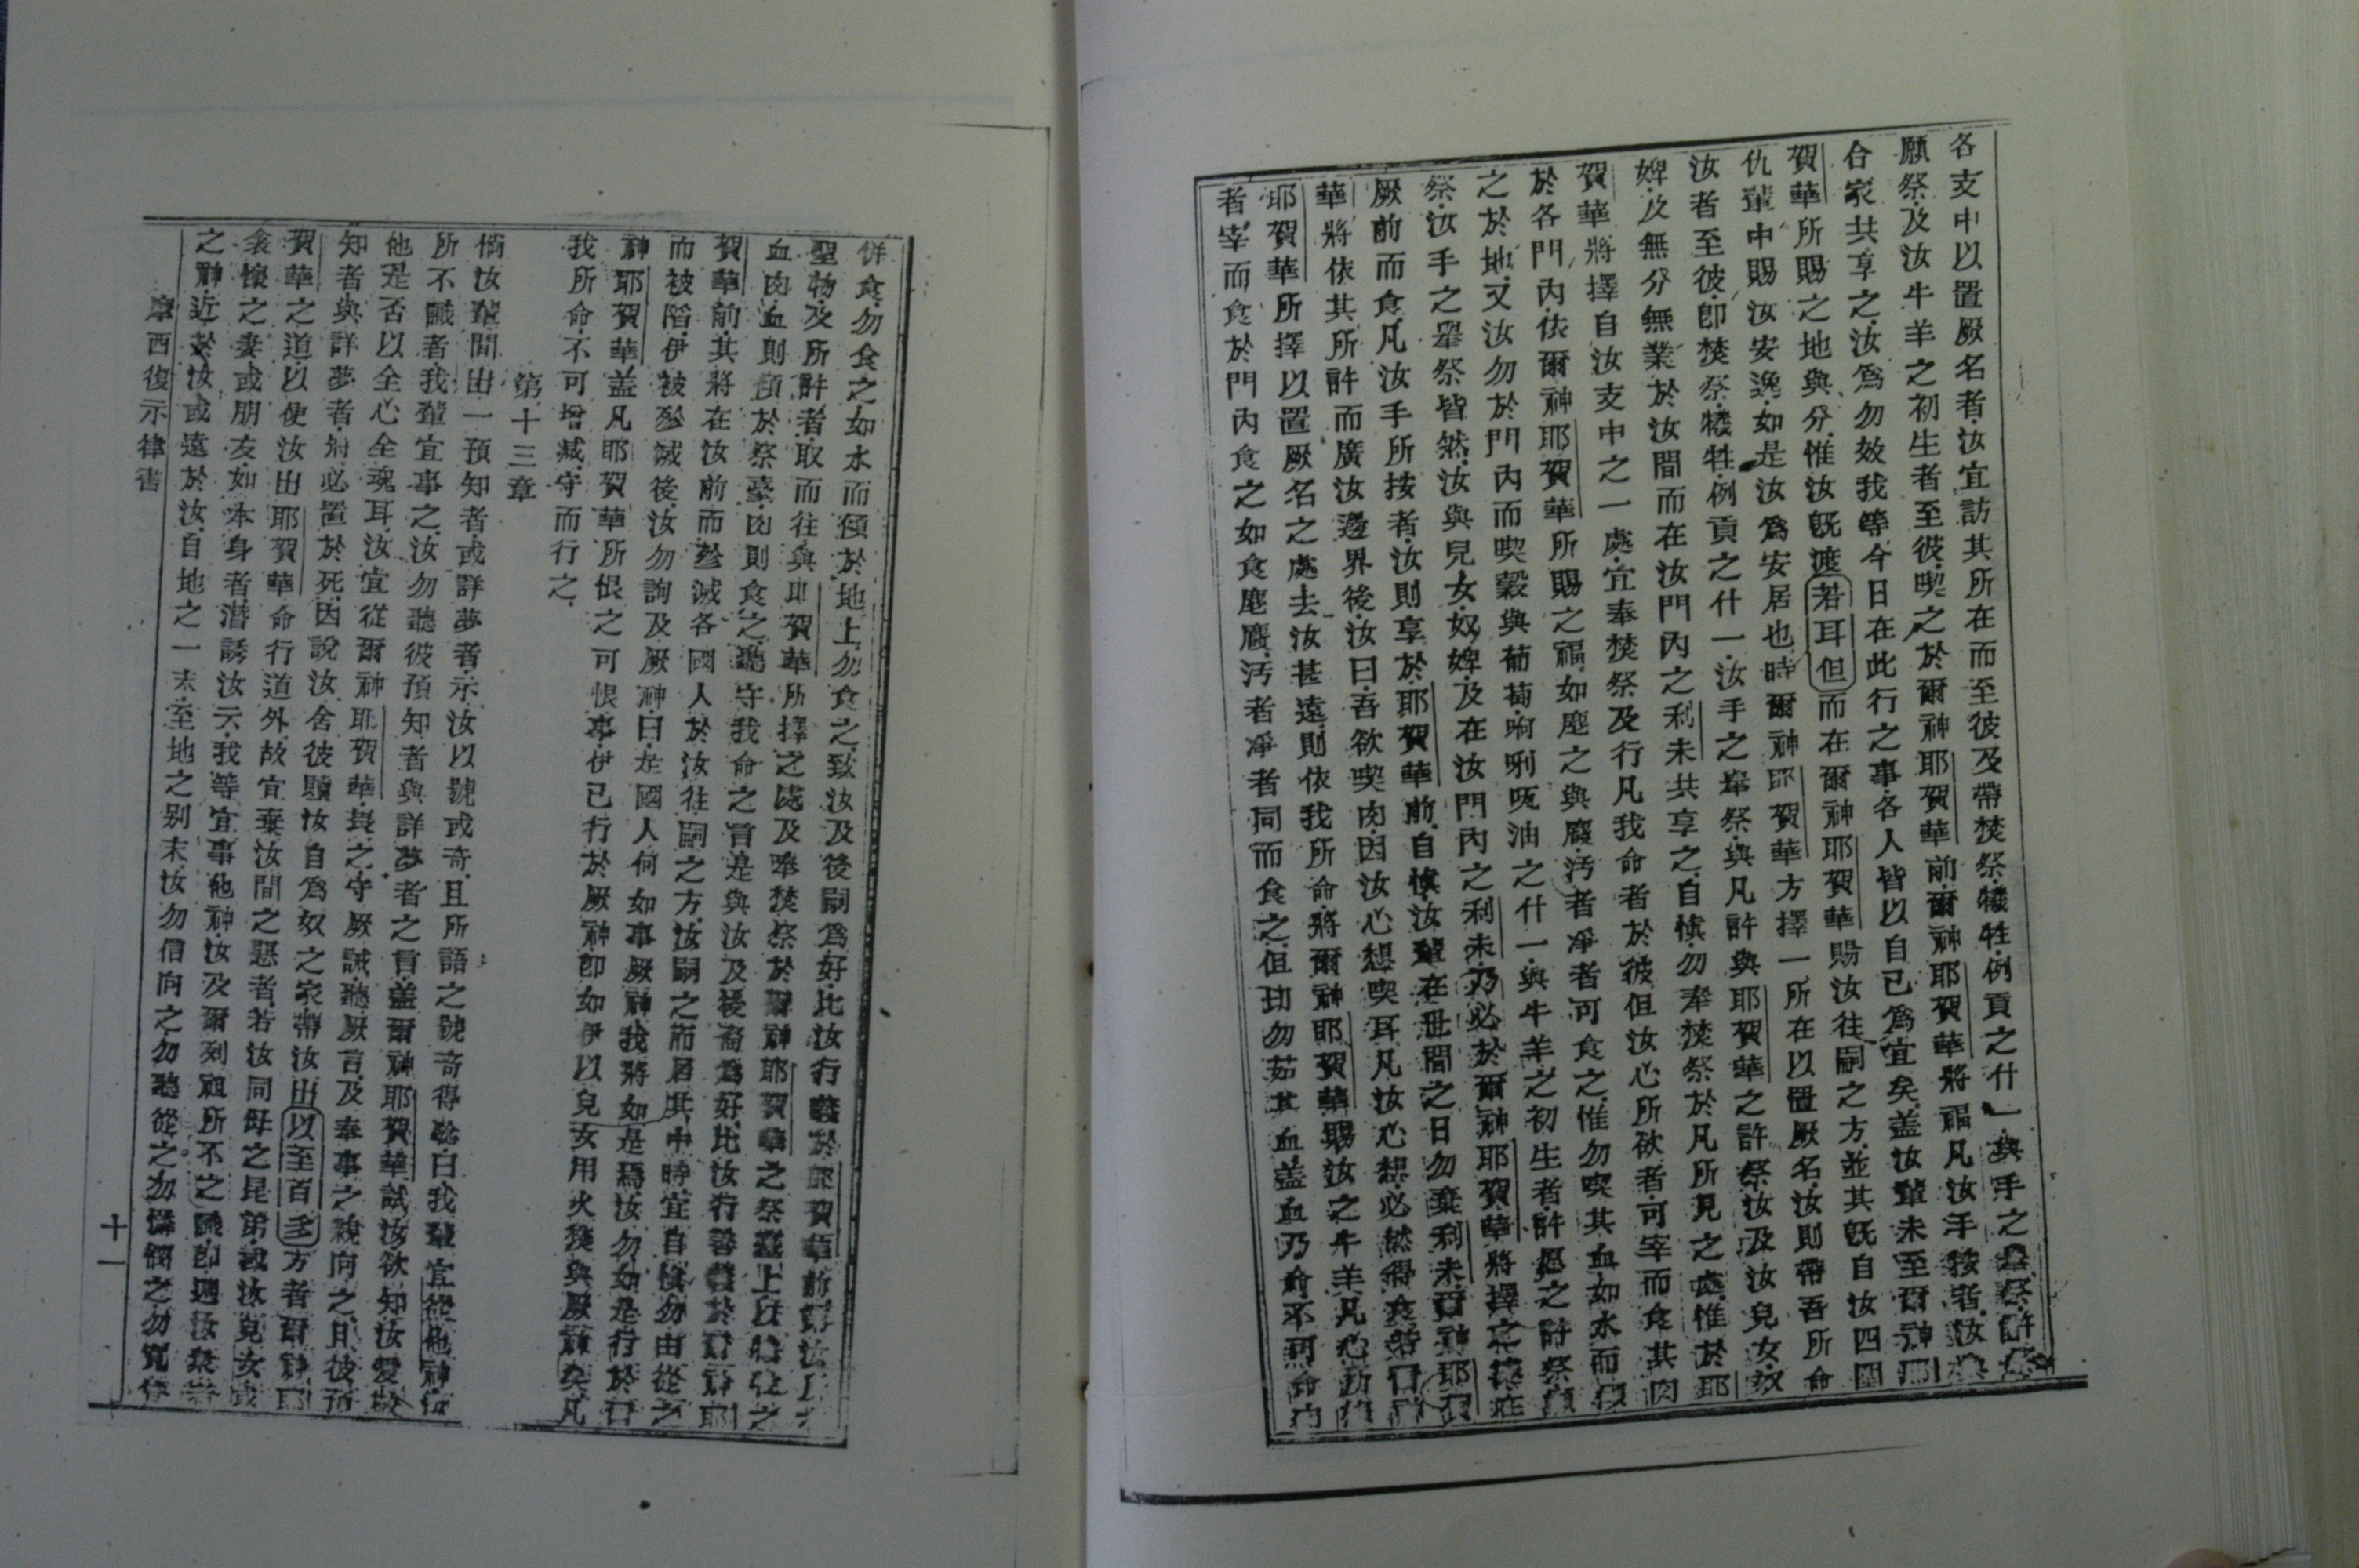 各支中以置厥名者汝宜訪其所在而至彼及帶焚祭犧牲例貢之什一與手之舉祭許
願祭及汝牛羊之初生者至彼喫之於爾神耶賀華前爾神耶賀華將福凡汝手按者汝與
合家共享之汝爲勿效我等今日在此行之事各人皆以自已爲宜矣盖汝輩未至爾神耶
賀華所賜之地與分惟汝既渡若耳但而在爾神耶賀華賜汝往嗣之方並其既自汝四圍
仇輩中賜汝安逸如是汝爲安居也時爾神耶賀華方擇一所在以置厥名汝則帶吾所命
汝者至彼卽焚祭犧牲例貢之什一汝手之舉祭與凡許與耶賀華之許祭汝及汝兒女奴
婢及無分無業於汝間而在汝門內之利未共享之自慎勿奉焚祭於凡所見之處惟於耶
賀華將擇自汝支中之一處宜奉焚祭及行凡我命者於彼但汝心所欲者可宰而食其肉
於各門內依爾神耶賀華所賜之福如塵之與麎汚者凈者可食之惟勿喫其血如水而傾
之於地又汝勿於門內而喫穀與葡萄哅唎㕽油之什一與牛羊之初生者許愿之許祭
祭汝手之舉祭皆然汝與兒女奴婢及在汝門內之利未乃必於爾神耶賀華將擇之
厥前而食凡汝手所按者汝則享於耶賀華前自慎汝輩在世間之日勿棄利未爾神耶賀
華將依其所許而廣汝邊界後汝曰吾欲喫肉因汝心想喫耳凡汝心想必然得食若爾神
耶賀華所擇以置厥名之處去汝甚遠則依我所命將爾神耶賀華賜汝之牛羊凡心所
者宰而食於門內食之如食塵麎汚者凈者同而食之但切勿茹其血盖血乃命不可命肉
併食勿食之如水而傾於地上勿食之致汝及後嗣爲好比汝行善於耶賀華前
聖物及所許者取而往與耶賀華所擇之處及奉焚祭於爾神耶賀華之祭臺上
血肉血則傾於祭臺肉則食之聽守我命之旨是與汝及後裔爲好比汝行善於爾神耶
賀華前其將在汝前而㐱滅各國人於汝往嗣之方汝嗣之而居其中時宜自慎勿由從之
而被陷伊被㐱滅後汝勿詢及厥神曰是國人何如事厥神我將如是焉汝勿如是行於爾
神耶賀華盖凡耶賀華所恨之可恨事伊已行於厥神卽如伊以兒女用火焚與厥神矣凡
我所命不可增減守而行之
第十三章
倘汝輩間出一預知者或詳夢者示汝以號或奇且所語之號奇得騐曰我輩宜從他神汝
所不識者我輩宜事之汝勿聽彼預知者與詳夢者之言盖爾神耶賀華試汝欲知汝愛敬
他是否以全心全魂耳汝宜從爾神耶賀華畏之守厥誡聽厥言及奉事之親向之且彼預
知者與詳夢者必置於死因說汝舍彼贖汝自爲奴之家帶汝出以至百多方者爾神耶
賀華之道以使汝出耶賀華命行道外故宜棄汝間之惡者若汝同母之昆弟或汝兒女或
衾懷之妻或朋友如本身者潛誘汝云我等宜事他神汝及爾列祖所不之識卽週汝
之神近於汝或遠於汝自地之一末至地之别末汝勿信向之勿聽從之勿憐憫之勿寬
摩西復示律書
十一